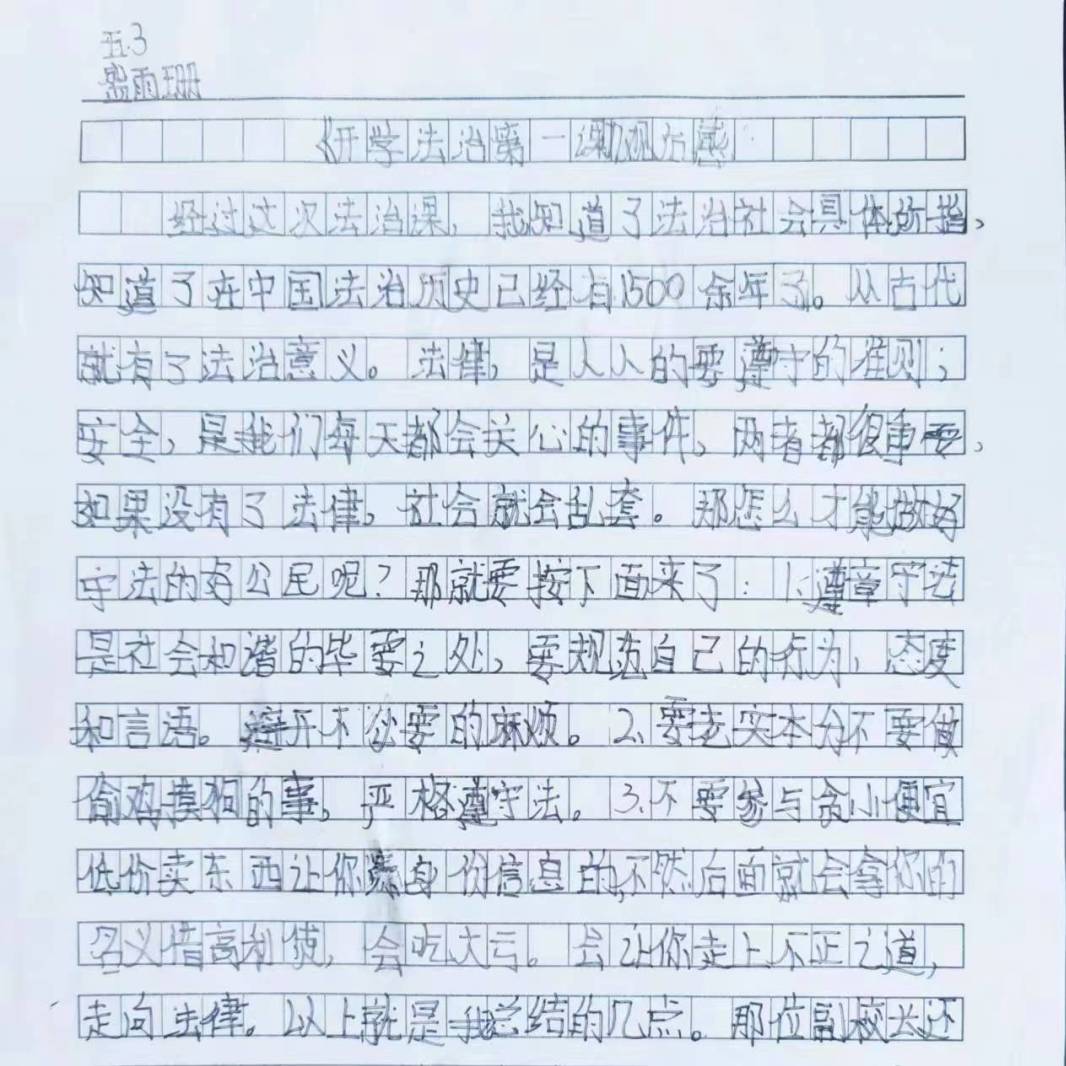 五.3
雨珊
《开学法治第一课》观后感
经过这次法治课，我知道了法治社会具体所指，
知道了在中国法治历史已经有1500余年了。从古代
就有了法治意义。法律，是人人的要遵守的准则；
安全，是我们每天都会关心的事件，两者都很重要，
如果没有了法律，社会就会乱套。那怎么才能做好
守法的好公民呢？那就要按下面来了：1.遵章守法
是社会和谐的毕要之处，要规范自己的行为，态度
和言语。避开不必要的麻烦。2.要老实本分不要做
偷鸡摸狗的事，严格遵守法。3.不要参与贪小便宜
低价卖东西让你暴身份信息的，不然后面就会拿你的
名义借高利贷，会吃大亏。会让你走上不正之道，
走向法律。以上就是我总结的几点。那位副校长还